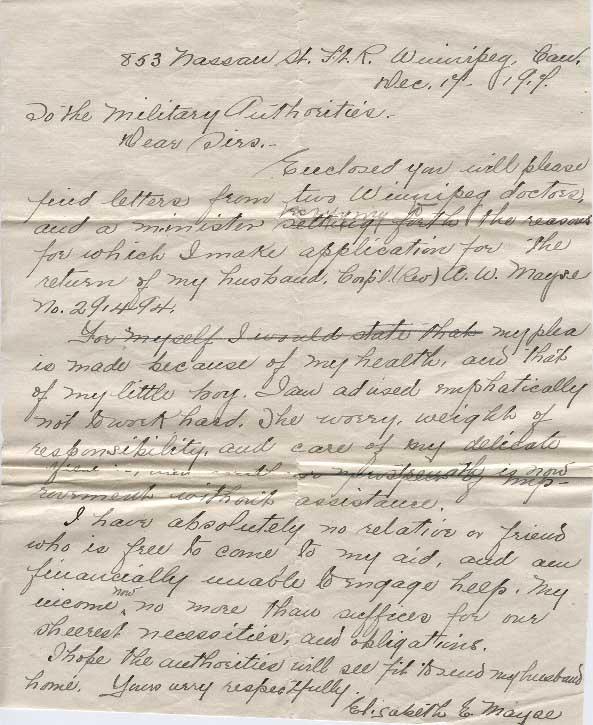 853 Nassau St. Ft. R. Winnipeg, Can.
Dec. 17 1917.
To the Military Authorities.-
Dear Sirs.-
Enclosed you will please
find letters from two Winnipeg doctors,
and a minister setting forth the reasons
for which I make application for the
return of my husband, Corp'l. (Rev) A. W. Mayse
No. 291494.
For myself I would state that my plea
is made because of my health, and that
of my little boy. I am advised emphatically
not to work hard. The worry, weight of
responsibility, and care of my delicate
is now imp-
rovement without assistance.
I have absolutely no relative or friend
who is free to come to my aid, and am
financially unable to engage help. My
income now no more than suffices for our
sheerest necessities, and obligations.
I hope the authorities will see fit to send my husband
home. Yours very respectfully,
Elizabeth E Mayse